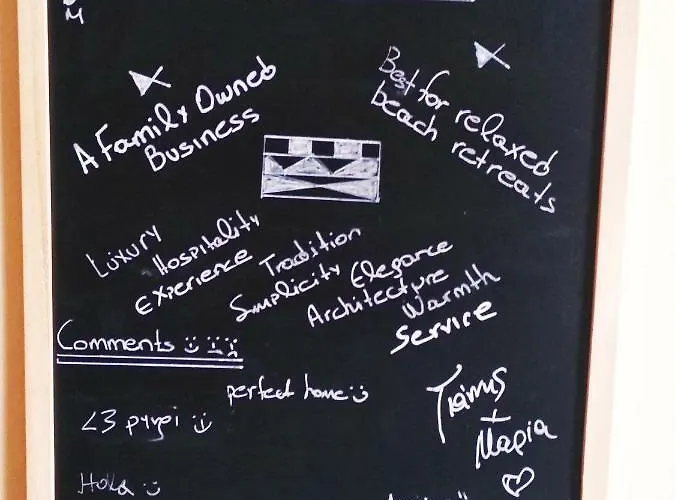 M
A Family Owned
Business
Best for relaxed
beach retreats
Luxury
Hospitality
Experience
Tradition
Simplicity
Elegance
Architecture
Warmth
Service
Comments :) :| :(
perfect home :)
<3 pyrgi :)
+
Μαρία
♡
Hola :)